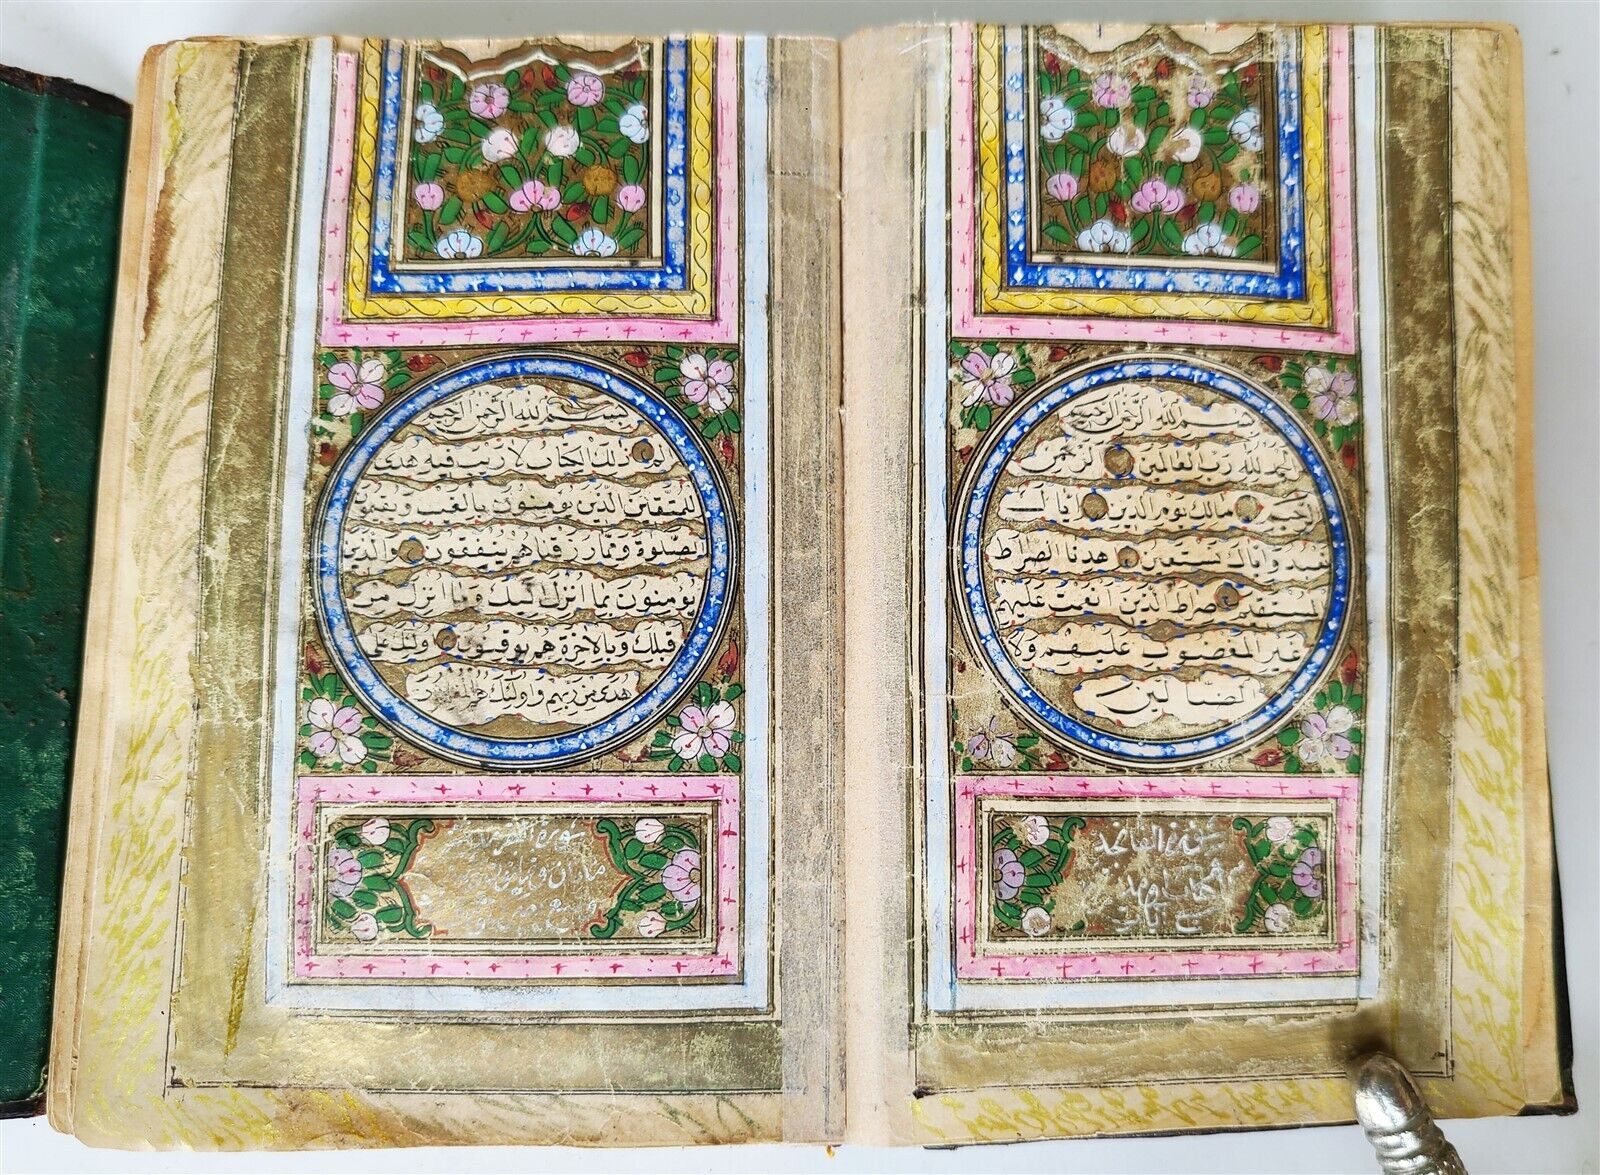 بسم الله الرحمن الرحيم
الحمد لله رب العالمين الرحمن
الرحيم مالك يوم الدين اياك
نعبد واياك نستعين اهدنا الصراط
المستقيم صراط الذين انعمت عليهم
غير المغضوب عليهم ولا
الضالين
سورة الفاتحة
سبع آيات
بسم الله الرحمن الرحيم
الم ذلك الكتاب لا ريب فيه هدى
للمتقين الذين يومنون بالغيب ويقيمون
الصلوة ومما رزقناهم ينفقون والذين
يومنون بما انزل اليك وما انزل من
قبلك وبالاخرة هم يوقنون اولئك على
هدى من ربهم واولئك هم المفلحون
سورة البقرة